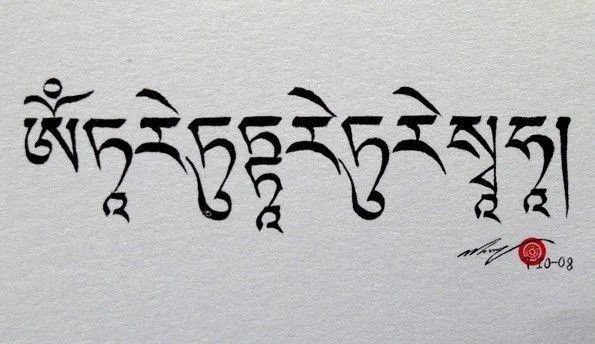 ཨོཾཏཱརེཏུཏྟཱརེཏུརེསྭཱཧཱ།
10-08